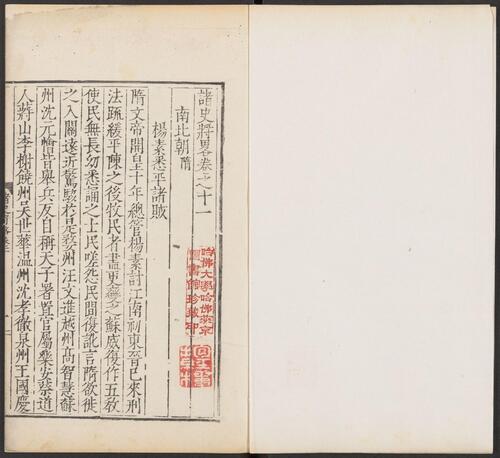 諸史將畧卷之十一
南北朝隋
楊素悉平諸賊
隋文帝開皇十年總管楊素討江南初東晉已來刑
法疏緩平陳之後牧民者盡更變之蘇威復作五教
使民無長幼悉誦之士民嗟怨民間復訛言隋欲徙
之入關遠近驚駭於是婺州汪文進越州高智慧蘇
州沈元懀皆舉兵反自稱天子署置官屬樂安蔡道
人蔣山李㮣饒州吳世華温州沈孝徹泉州王國慶
哈佛大學哈佛燕京
圖書館珍藏印